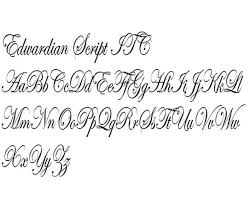 Edwardian Script ITC
AaBbCcDdEeFfGgHhIiJjKkLl
MmNnOoPpQqRrSsTtUuVvWw
XxYyZz